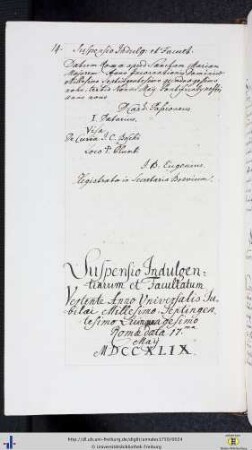 14. Suspensio Indulg. et Facult.
Datum Romæ apud Sanctam Mariam
Majorem Anno Incarnationis Dominicæ
Millesimo Septingentesimo quadragesimo
nono, tertio Nonas Maij Pontificatus nostri
anno nono
D. Card. Passioneus
I. Datarius.
Visa
De Curia I. C. Boschi
Loco Plumbi
I. B. Eugenius.
Registrata in Secretaria Brevium.
Suspensio Indulgen-
tiarum et Facultatum
Vertente Anno Universalis Ju-
bilæi Millesimo Septingen-
tesimo Quinquagesimo
Romæ data 17.
May
MDCCXLIX.
https://dl.ub.uni-freiburg.de/diglit/annales1750/0024
© Universitätsbibliothek Freiburg